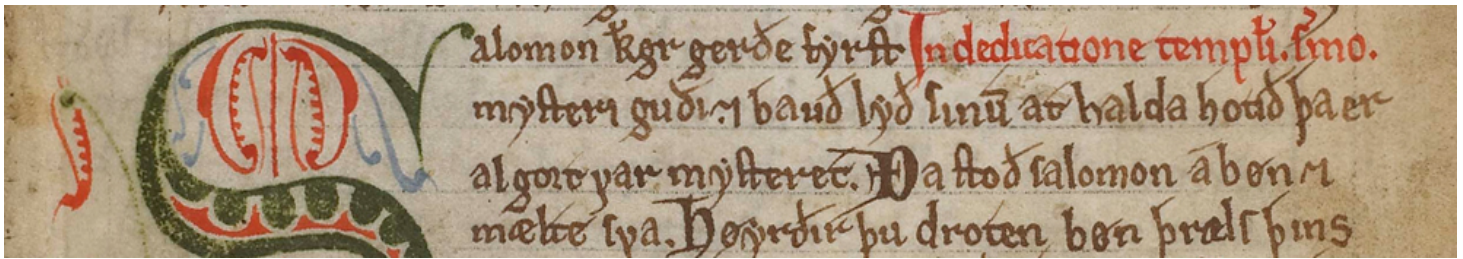 Salomon kgr gerðe fyrst In dedicatione templi. sermo.
mysteri guði. ⁊ bauð lyð sinū at halda hotið þa er
algort var mysteret. Þa stoð salomon a bøn ⁊
mælte sva. Høyrðir þu droten bøn þræls þins